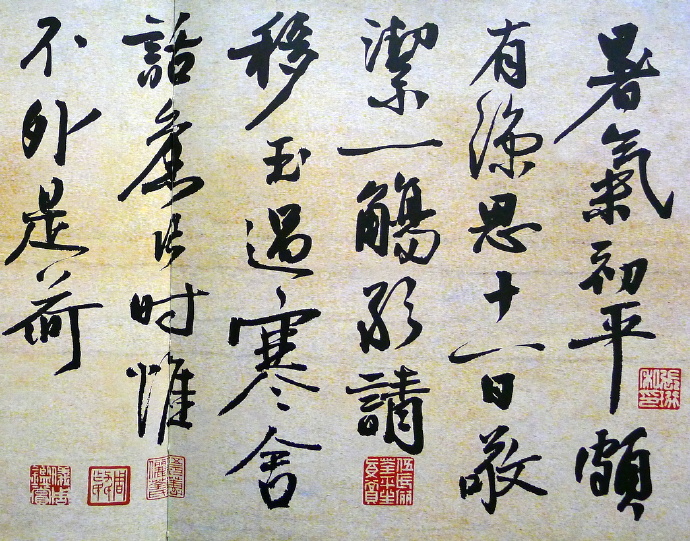 暑氣初平頗
有涼思十八日敬
潔一觴敢請
移玉過寒舍
話舊片时惟
不外是荷